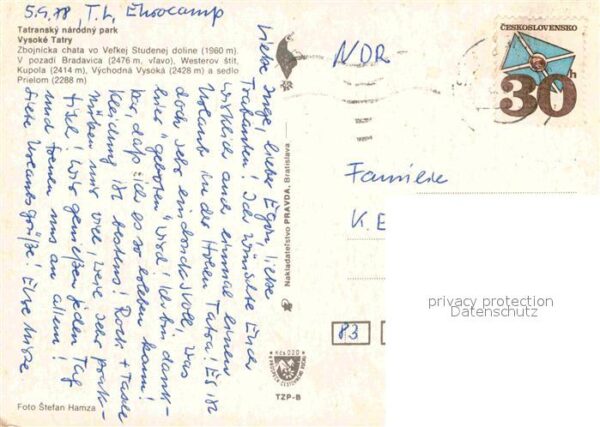 5.9.78, T.L. Eurocamp
Tatranský národný park
Vysoké Tatry
Zbojnícka chata vo Veľkej Studenej doline (1960 m).
V pozadí Bradavica (2476 m, vľavo), Westerov štít,
Kupola (2414 m), Východná Vysoká (2428 m) a sedlo
Prielom (2288 m)
Liebe Inge, lieber Egon, liebe
Ich wünschte Euch
wirklich auch einmal einen
Urlaub in der Hohen Tatra! Es ist
doch sehr eindrucksvoll, was
hier "geboten" wird! Ich bin dank-
bar, daß ich es so erleben kann!
Kleidung ist bestens! Rock + Tasche
nützen mir viel, weil sehr prak-
tisch! Wir genießen jeden Tag
und freuen uns an allem!
Liebe Urlaubsgrüße! Eure
Foto Štefan Hamza
Nakladateľstvo PRAVDA, Bratislava
TZP-B
NDR
ČESKOSLOVENSKO
30h
Familie
K. E
83
privacy protection
Datenschutz